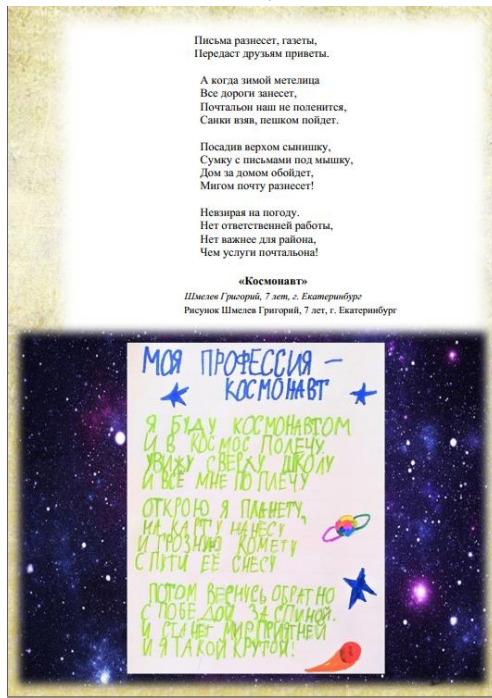 Письма разнесет, газеты,
Передаст друзьям приветы.
А когда зимой метелица
Все дороги занесет,
Почтальон наш не поленится,
Санки взяв, пешком пойдет.
Посадив верхом сынишку,
Сумку с письмами под мышку,
Дом за домом обойдет,
Мигом почту разнесет!
Невзирая на погоду.
Нет ответственней работы,
Нет важнее для района,
Чем услуги почтальона!
«Космонавт»
Шмелев Григорий, 7 лет, г. Екатеринбург
Рисунок Шмелев Григорий, 7 лет, г. Екатеринбург
МОЯ ПРОФЕССИЯ –
КОСМОНАВТ
Я БУДУ КОСМОНАВТОМ
И В КОСМОС ПОЛЕЧУ.
УВИЖУ СВЕРХУ ШКОЛУ
И ВСЕ МНЕ ПО ПЛЕЧУ
ОТКРОЮ Я ПЛАНЕТУ,
НА КАРТУ НАНЕСУ
И ГРОЗНУЮ КОМЕТУ
С ПУТИ ЕЁ СНЕСУ
ПОТОМ ВЕРНУСЬ ОБРАТНО
С ПОБЕДОЙ ЗА СПИНОЙ.
И СТАНЕТ МИР ПРИЯТНЕЙ
И Я ТАКОЙ КРУТОЙ!